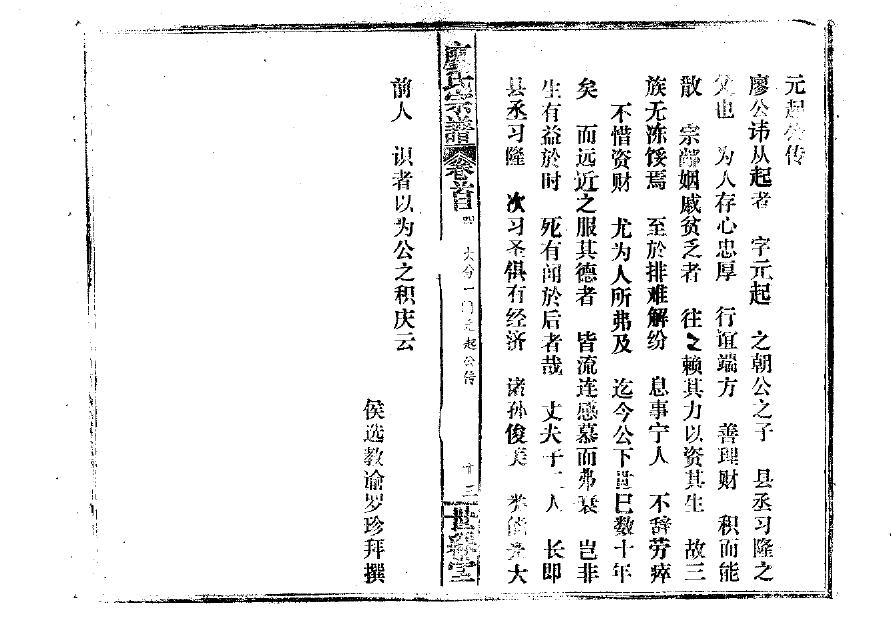 元起公传
廖公讳从起者 字元起 之朝公之子 县丞习隆之
父也 为人存心忠厚 行谊端方 善理财 积而能
散 宗鄰姻戚贫乏者 往之赖其力以资其生 故三
族无冻馁焉 至於排难解纷 息事宁人 不辞劳瘁
不惜资财 尤为人所弗及 迄今公下世已数十年
矣 而远近之服其德者 皆流连感慕而弗衰 岂非
生有益於时 死有闻於后者哉 丈夫子二人 长即
县丞习隆 次习圣俱有经济 诸孙俊美 类能光大
廖氏宗谱
卷首
四 大分一门元起公传
廿三
世綵堂
前人 识者以为公之积庆云
侯选教谕罗珍拜撰